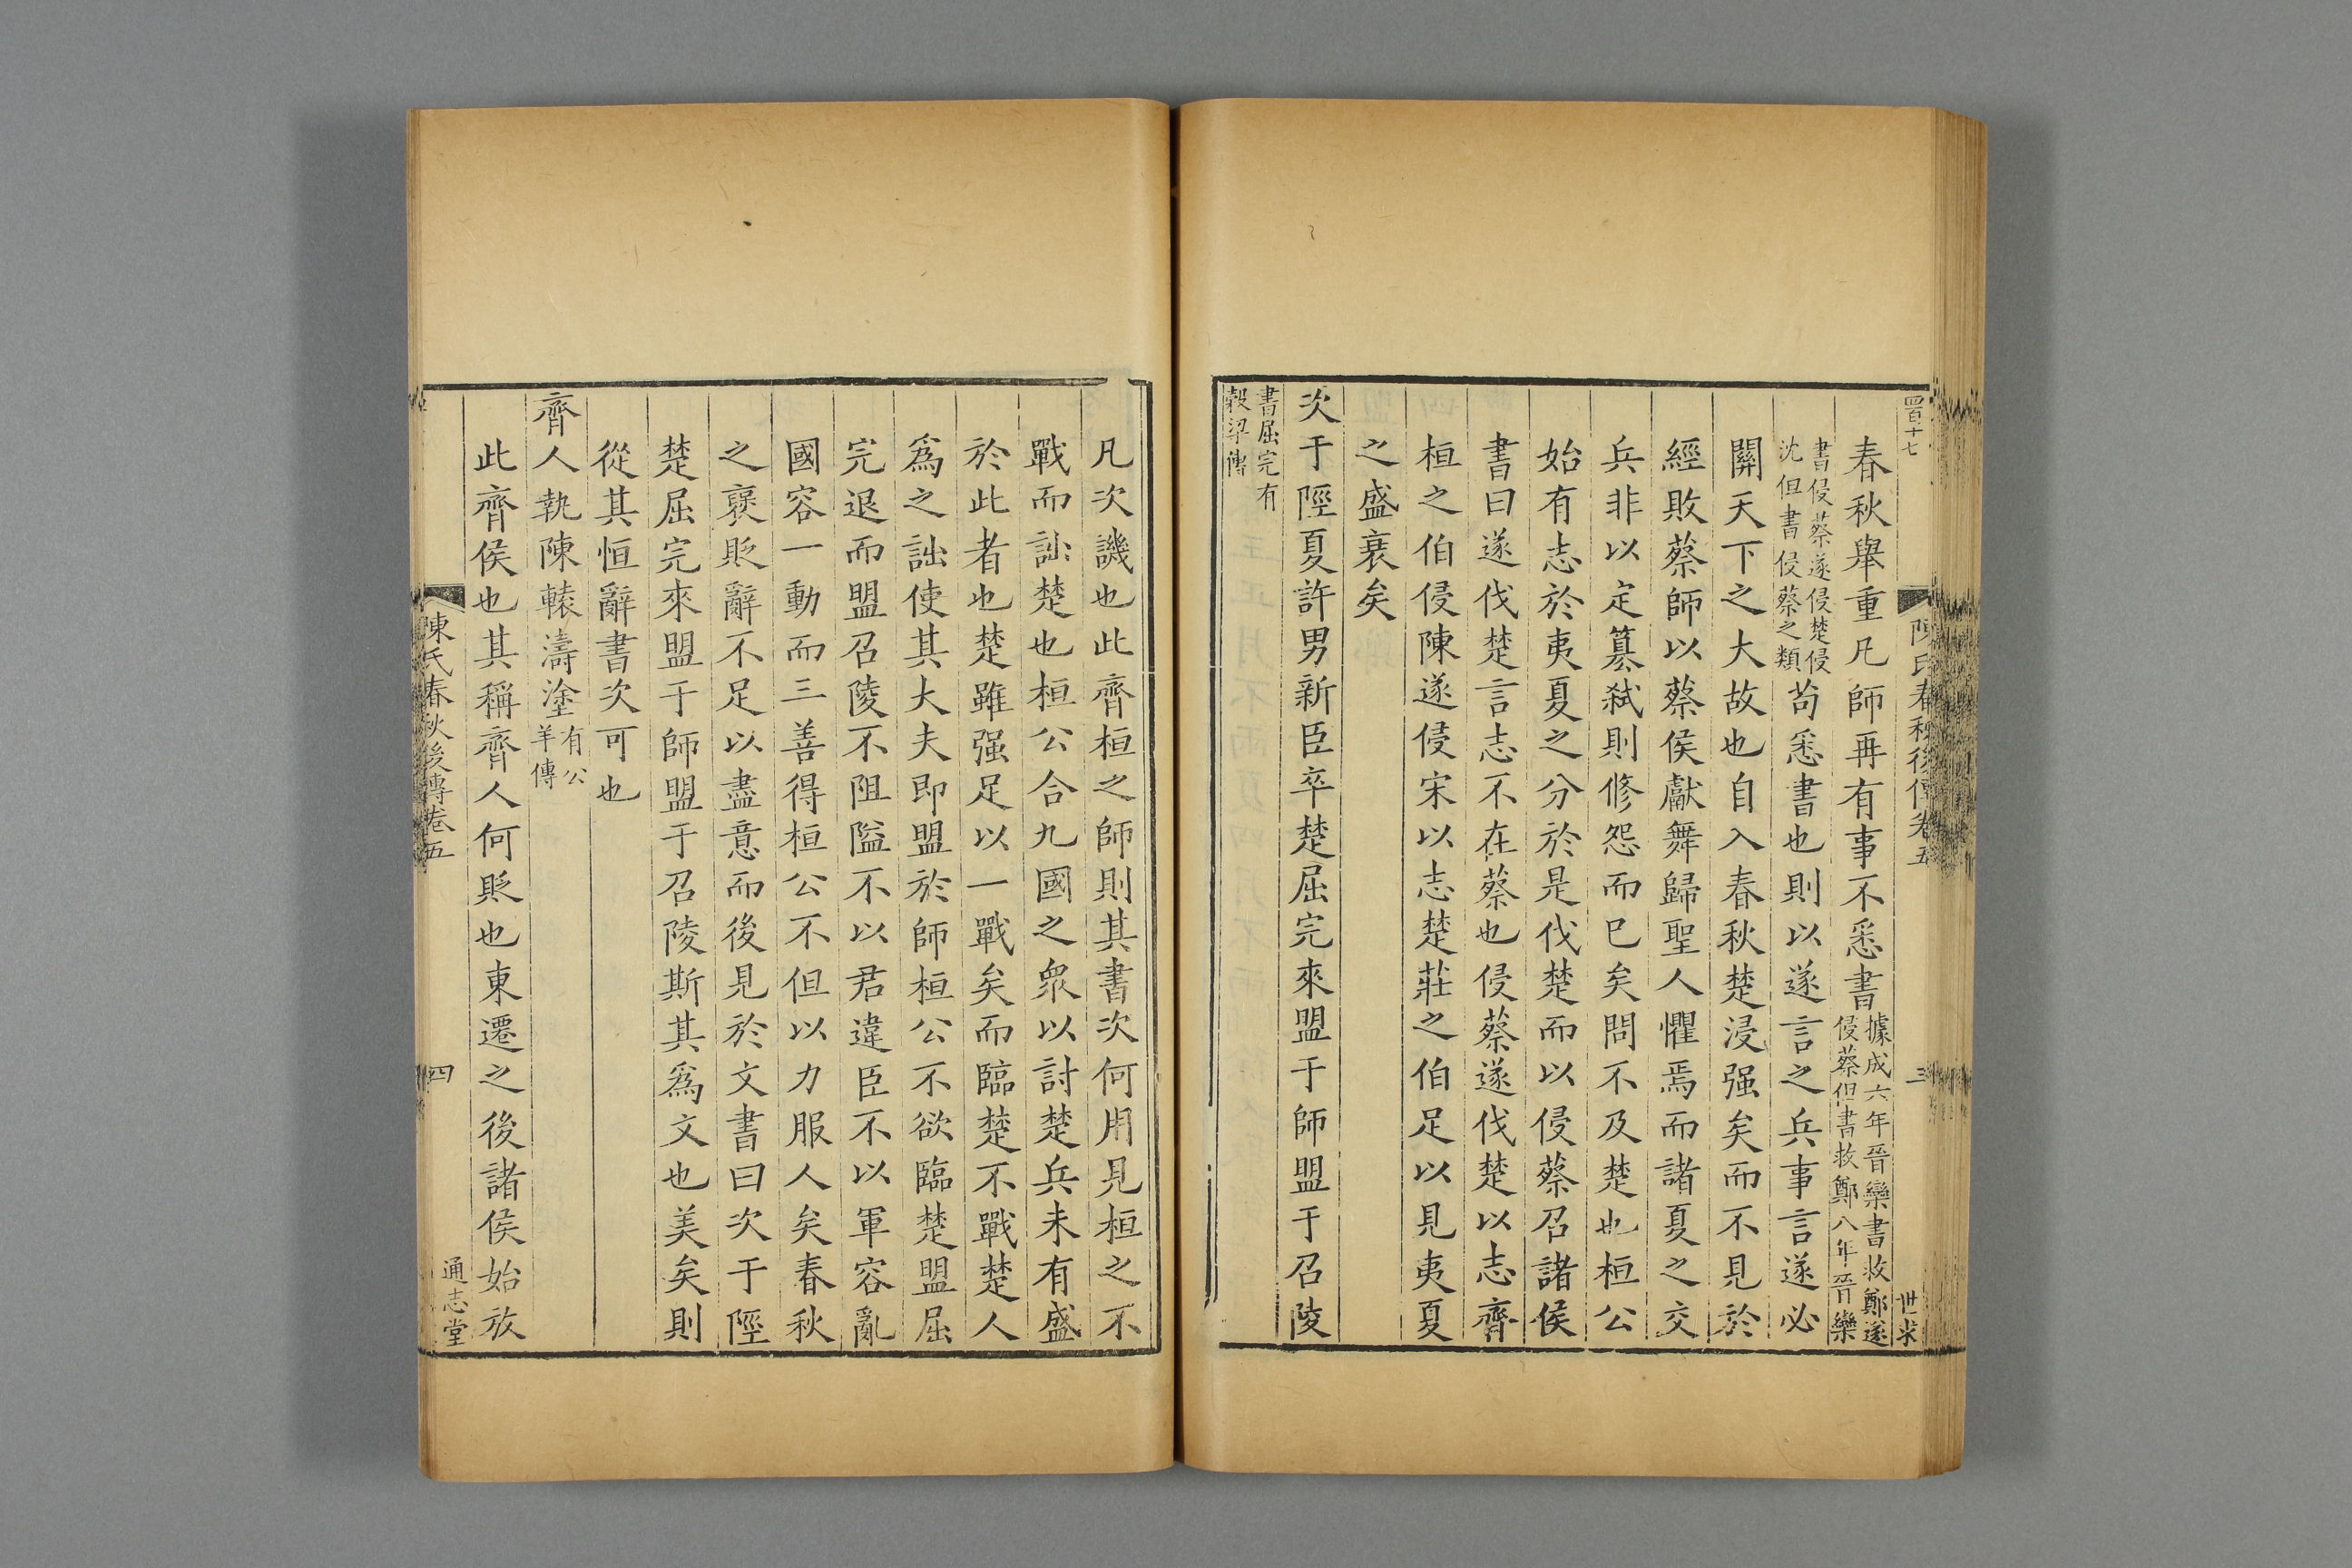 四百十七
陳氏春秋後傳卷五
三
世求
春秋舉重凡師再有事不悉書據成六年晉欒書救鄭遂
侵蔡但書救鄭八年晉欒
書侵蔡遂侵楚侵
沈但書侵蔡之類苟悉書也則以遂言之兵事言遂必
關天下之大故也自入春秋楚浸强矣而不見於
經敗蔡師以蔡侯獻舞歸聖人懼焉而諸夏之交
兵非以定篡弑則修怨而已矣問不及楚也桓公
始有志於夷夏之分於是伐楚而以侵蔡召諸侯
書曰遂伐楚言志不在蔡也侵蔡遂伐楚以志齊
桓之伯侵陳遂侵宋以志楚莊之伯足以見夷夏
之盛衰矣
次于陘夏許男新臣卒楚屈完來盟于師盟于召陵
書屈完有
穀梁傳
凡次譏也此齊桓之師則其書次何用見桓之不
戰而詘楚也桓公合九國之衆以討楚兵未有盛
於此者也楚雖强足以一戰矣而臨楚不戰楚人
爲之詘使其大夫即盟於師桓公不欲臨楚盟屈
完退而盟召陵不阻隘不以君違臣不以軍容亂
國容一動而三善得桓公不但以力服人矣春秋
之襃貶辭不足以盡意而後見於文書曰次于陘
楚屈完來盟于師盟于召陵斯其爲文也美矣則
從其恒辭書次可也
齊人執陳轅濤塗有公
羊傳
此齊侯也其稱齊人何貶也東遷之後諸侯始放
陳氏春秋後傳卷五
四
通志堂